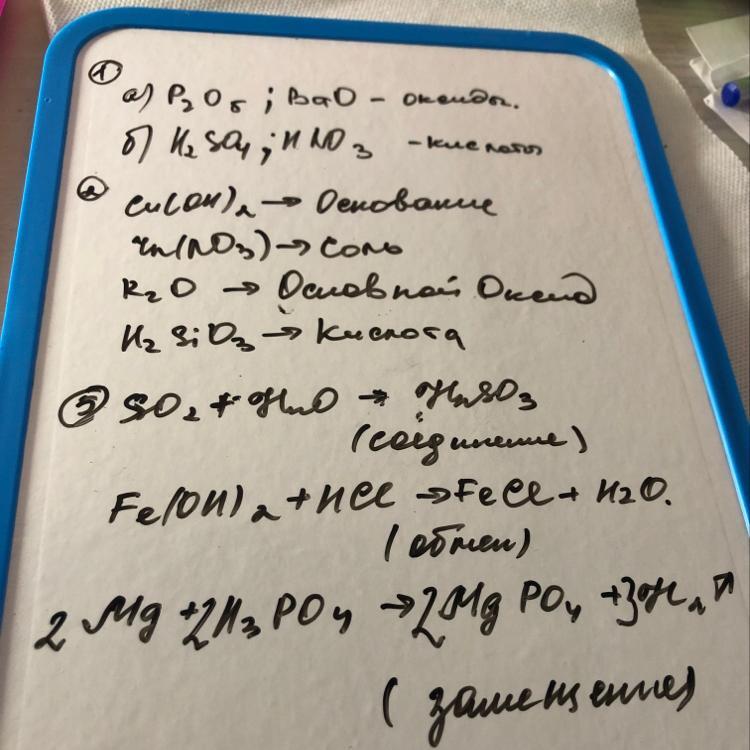 ① а) P2O5 ; BaO – оксиды.
б) H2SO4 ; HNO3 – кислоты
② Cu(OH)2 → Основание
Zn(NO3) → соль
K2O → Основной Оксид
H2SiO3 → Кислота
③ SO2 + H2O → H2SO3
(соединение)
Fe(OH)2 + HCl → FeCl + H2O.
(обмен)
2 Mg + 2H3PO4 → 2MgPO4 + 3H2↗
(замещение)